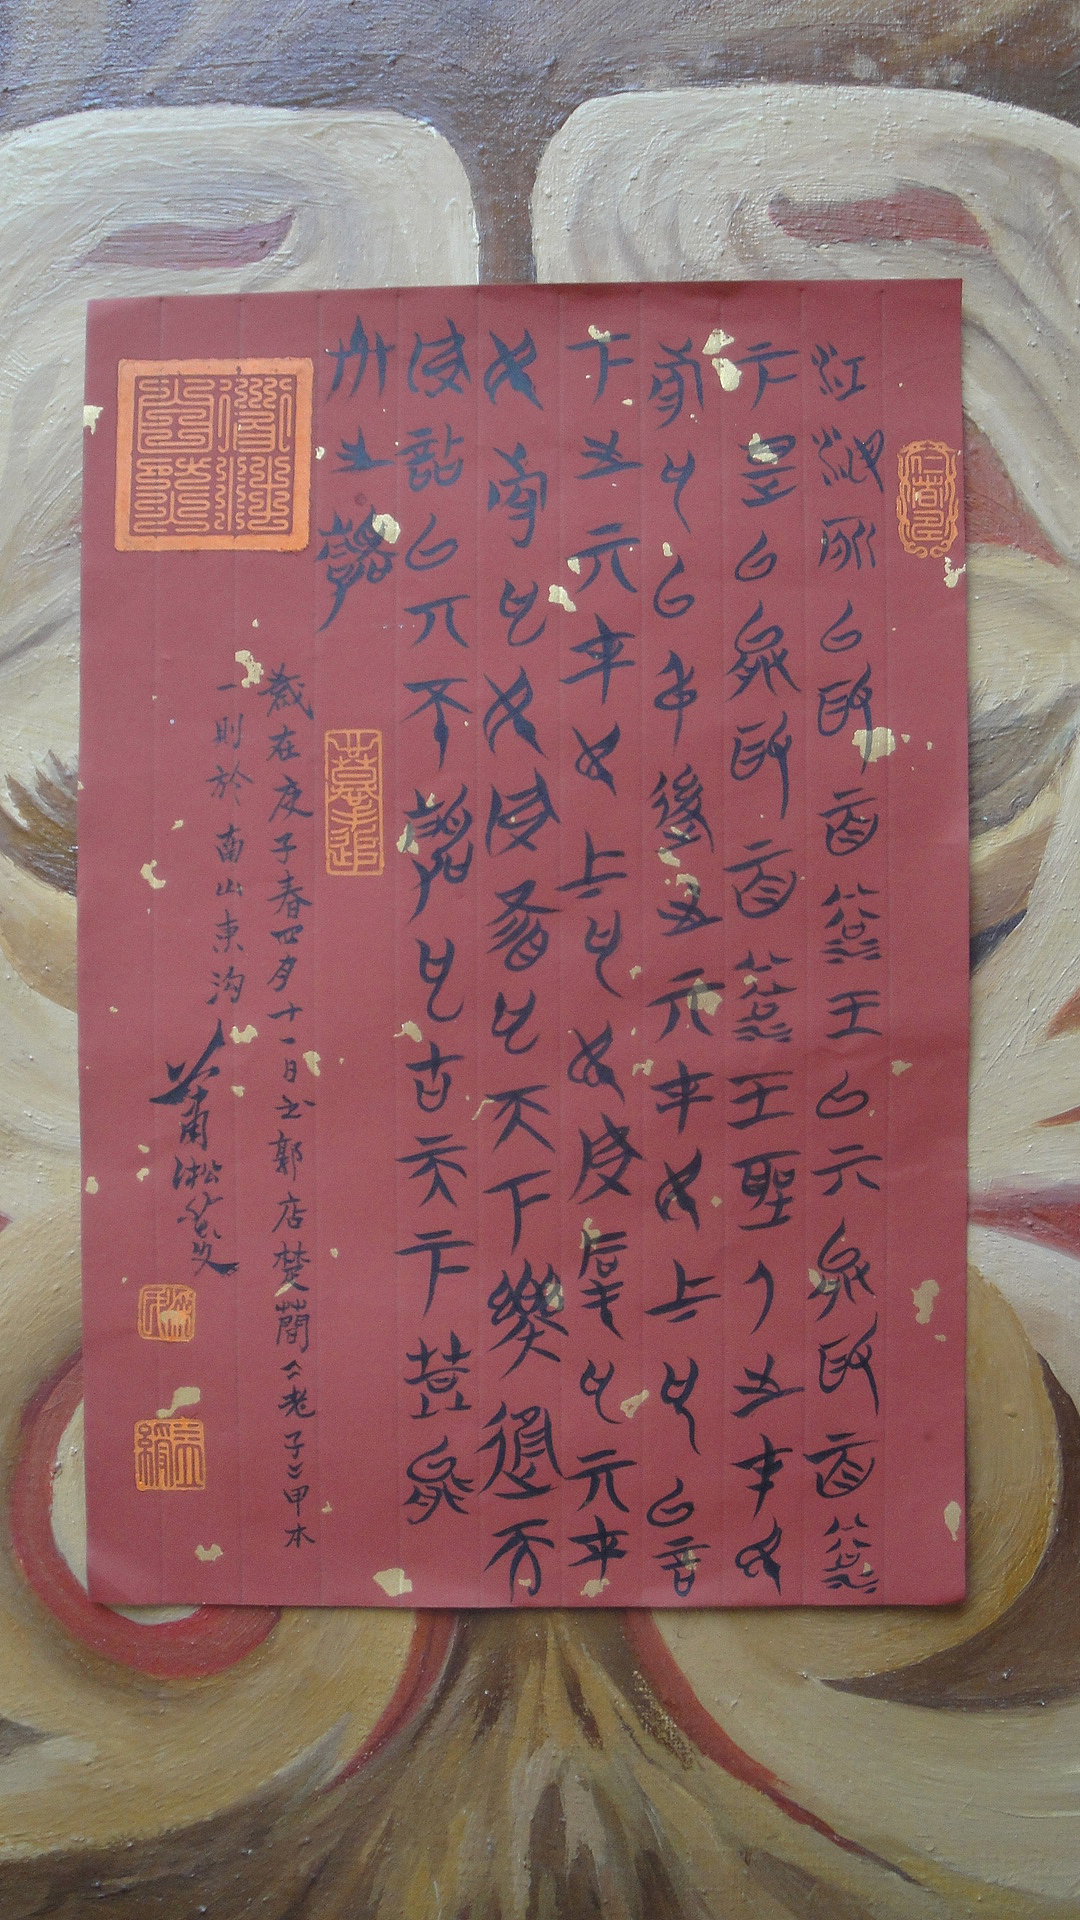 江海所以為百浴王以其能為百浴
下是以能為百浴王聖人之在民
前也以身後之其在民上也以言
下之其在民上也民弗厚也其在
民前也民弗害也天下樂進而
弗詀以其不爭也古天下莫能
與之爭
歲在庚子春四月十一日书郭店楚簡《老子》甲本
一則於南山東沟